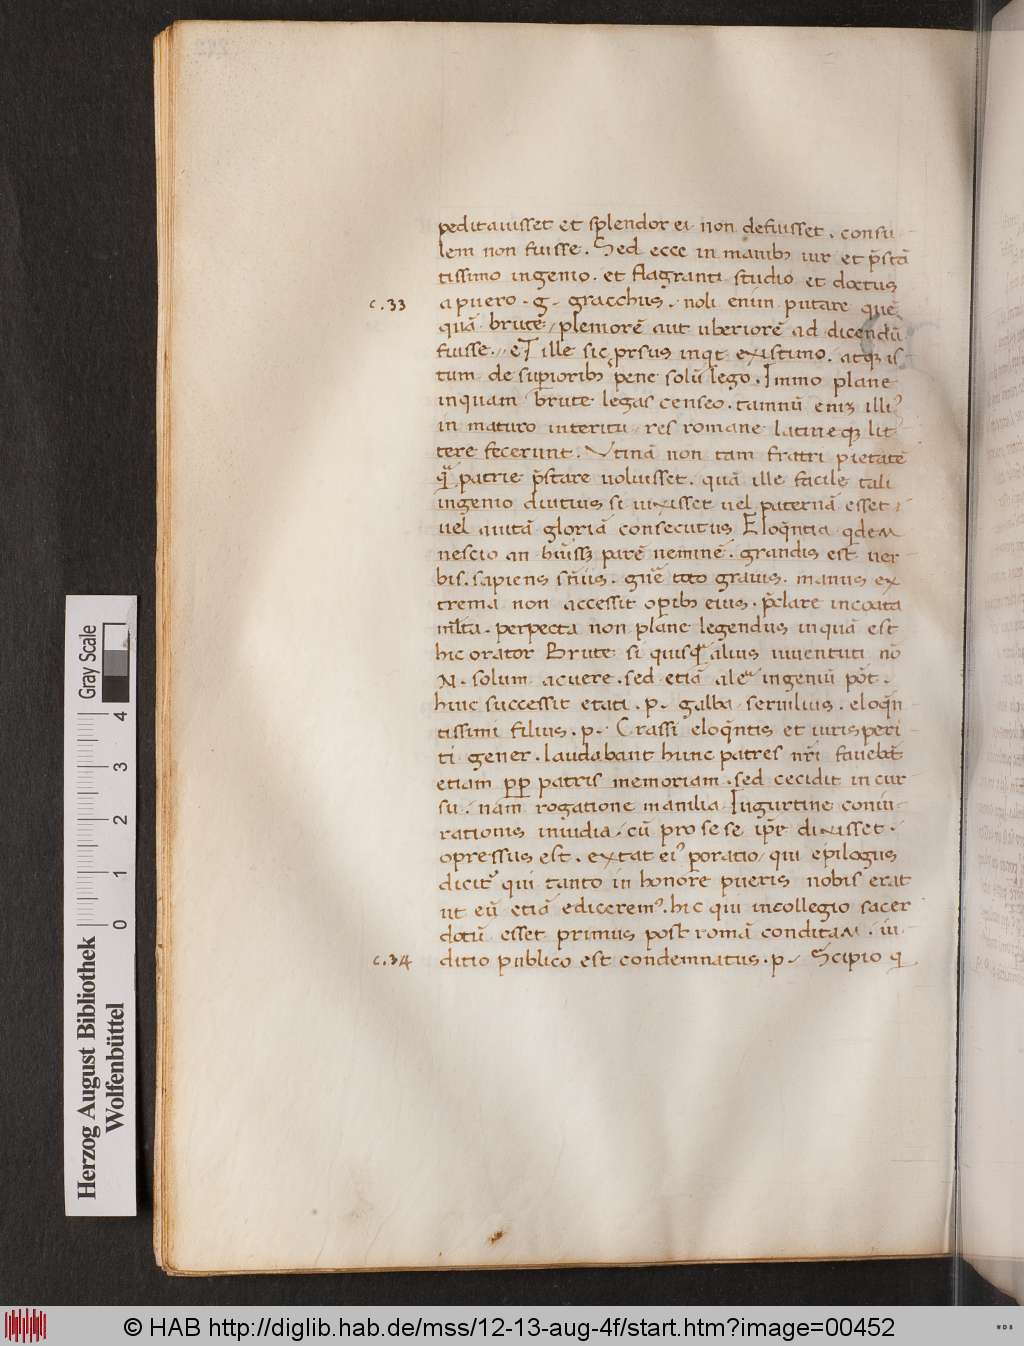 peditauisset et splendor ei non defuisset . consu
lem non fuisse . Sed ecce in manibꝫ uir et p̄stā
tissimo ingenio . et flagranti studio et doctus
c.33 a puero . g . gracchus . noli enim putare quē
quā brute / pleniorē aut uberiorē ad dicendū
fuisse . / Et ille sic prsus inqt existimo . atqꝫ is
tum de superioribꝫ pene solū lego . Immo plane
inquam brute legas censeo . damnū eniꝫ illiꝰ
in maturo interitu res romane latineqꝫ lit
tere fecerunt . Vtinā non tam fratri pietatē
qᵃ̄ patrie p̄stare uoluisset . quā ille facile tali
ingenio diutius si uixisset uel paternā esset /
uel auitā gloriā consecutus Eloq̄ntia qdem
nescio an hūissꝫ parē neminē . grandis est uer
bis . sapiens sn̄iis . gn̄e toto grauis . manus ex
trema non accessit operibꝫ eius . p̄clare incoata
ml̄ta . perpecta non plane legendus inquā est
hic orator Brute si quisqᵃ̄ alius iuuentuti nō
N . solum acuere . sed etiā ale ingeniū pōt .
huic successit etati . p . galba seruilius . eloq̄n
tissimi filius . p . Crassi eloq̄ntis et iurisperi
ti gener . laudabant hunc patres nr̄i fauebāt
etiam pp̄ patris memoriam . sed cecidit in cur
su . nam rogatione manilia Iugurtine coniu
rationis inuidia / cū pro se se ip̄e dixisset .
opressus est . extat eiꝰ peroratio / qui epilogus
dicit̉ qui tanto in honore pueris nobis erat
ut eū etiā edisceremꝰ . hic qui in collegio sacer
dotū esset primus post romā conditam . iu
c.34 ditio publico est condemnatus . p / Scipio q
Gray Scale
4 3 2 1 0
Herzog August Bibliothek
Wolfenbüttel
© HAB http://diglib.hab.de/mss/12-13-aug-4f/start.htm?image=00452